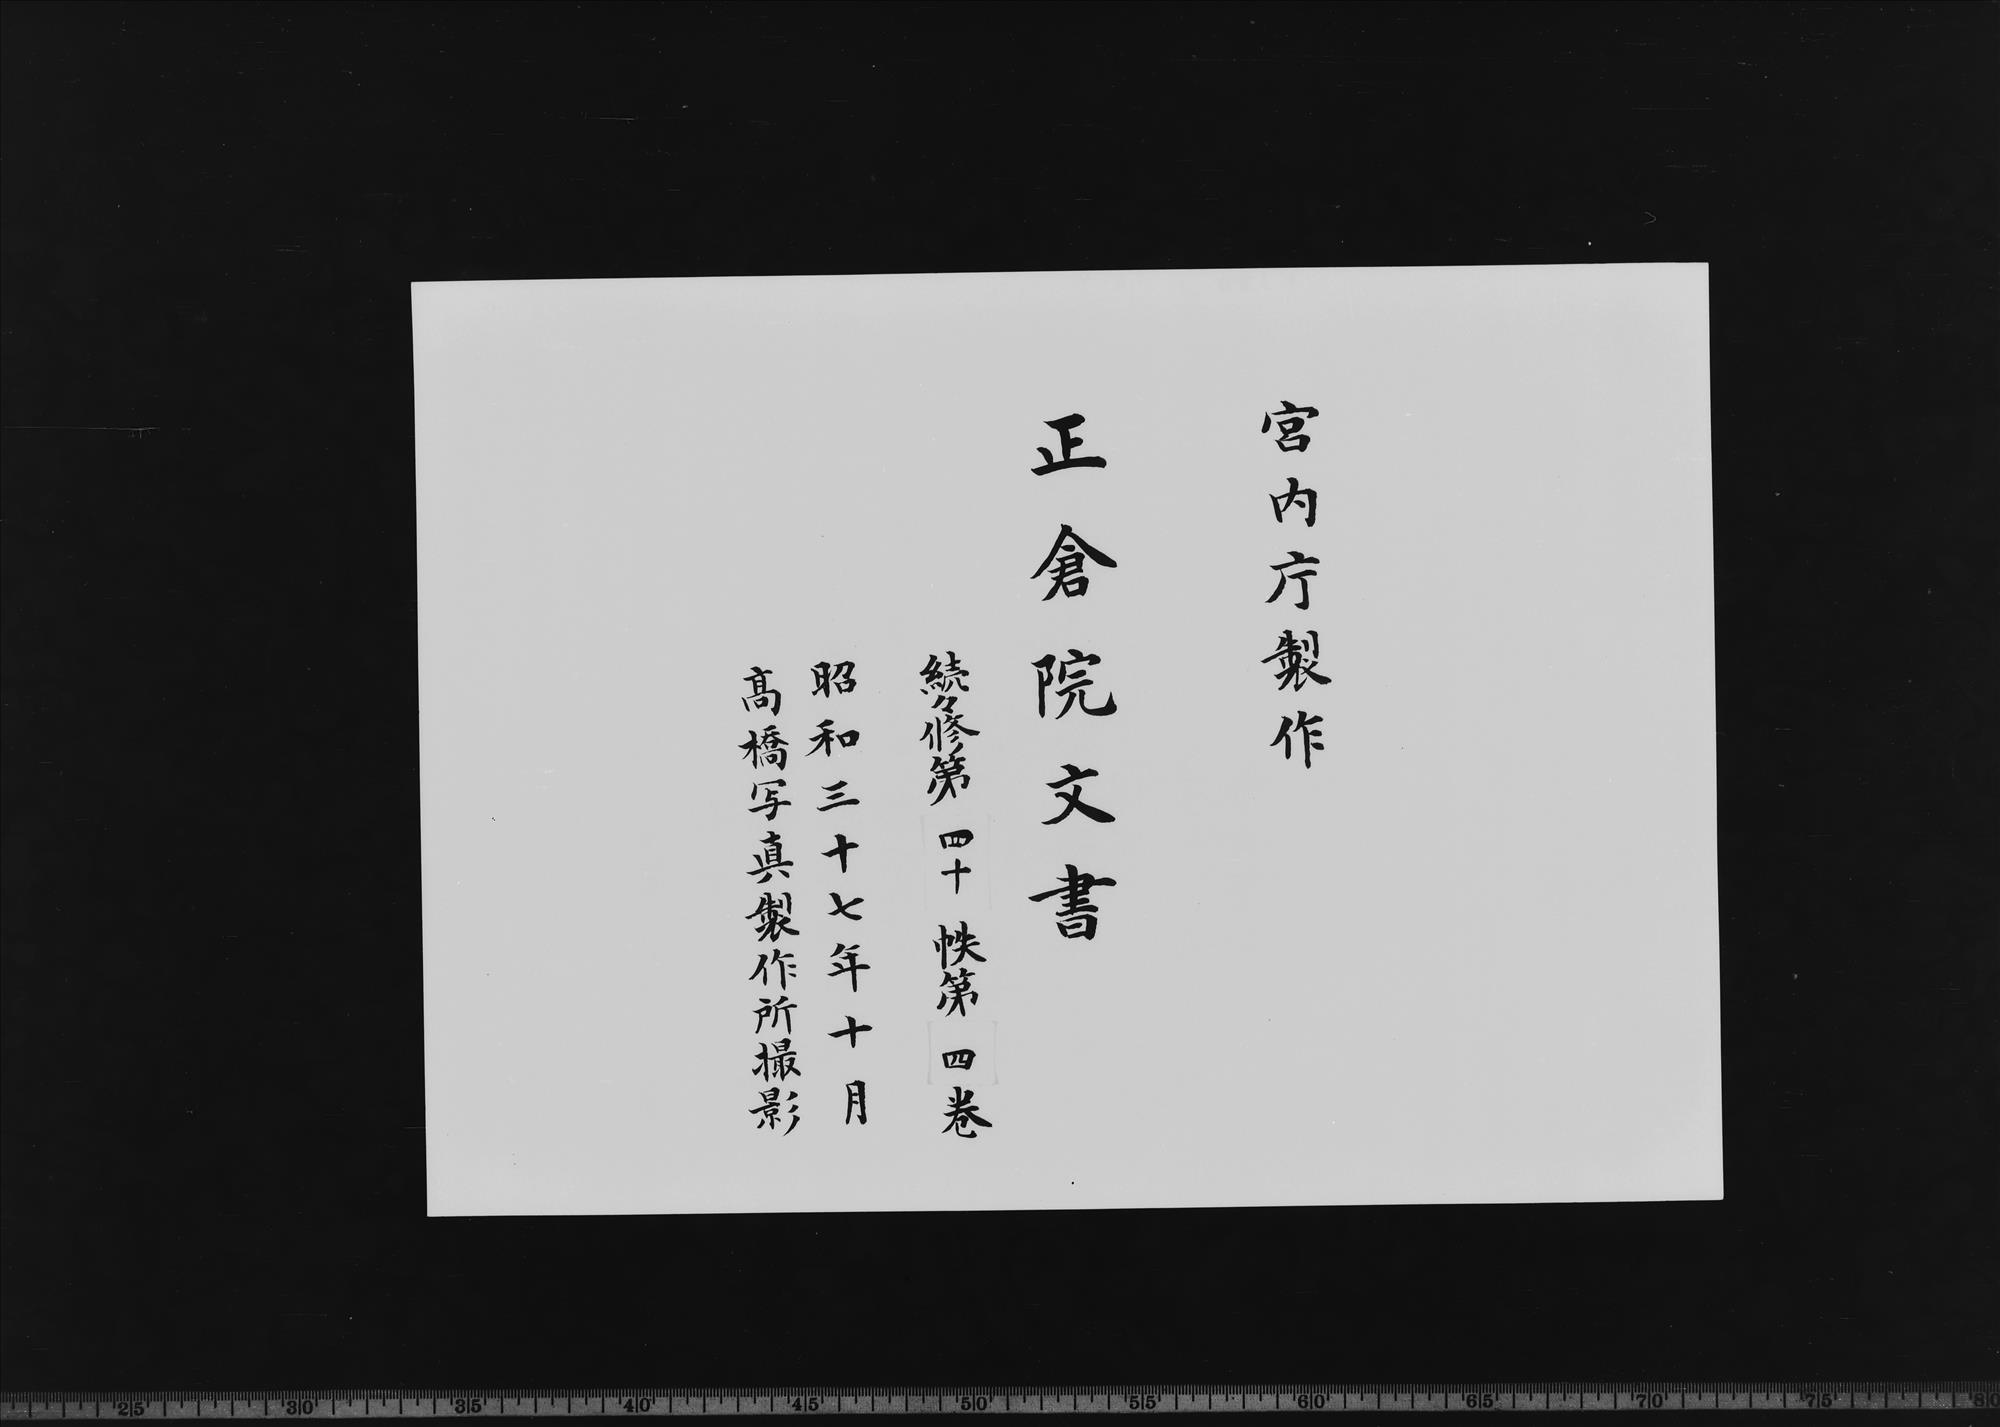 宮内庁製作
正倉院文書
続々修第四十帙第四巻
昭和三十七年十月
髙橋写真製作所撮影
25 30 35 40 45 50 55 60 65 70 75 80